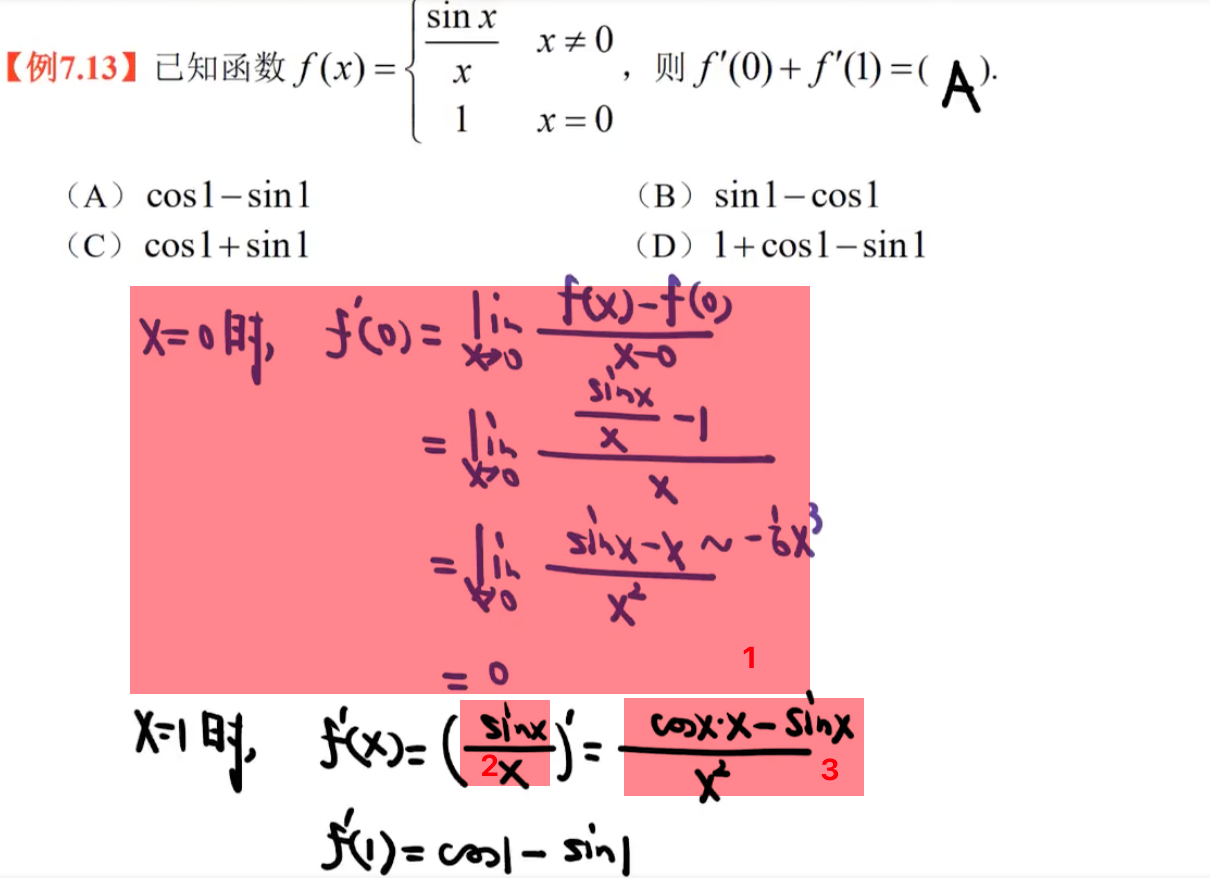 【例7.13】已知函数 f(x) = { sin x / x  x ≠ 0 ; 1  x = 0 ，则 f′(0) + f′(1) = ( A ).
（A）cos1 − sin1 （B）sin1 − cos1
（C）cos1 + sin1 （D）1 + cos1 − sin1
x=0时, f′(0) = lim x→0 (f(x) − f(0)) / (x−0)
= lim x→0 (sinx/x − 1) / x
= lim x→0 (sinx − x ~ −1/6 x³) / x²
= 0 1
x=1时, f′(x) = (sinx/x)′ = (cosx·x − sinx) / x² 2 3
f′(1) = cos1 − sin1